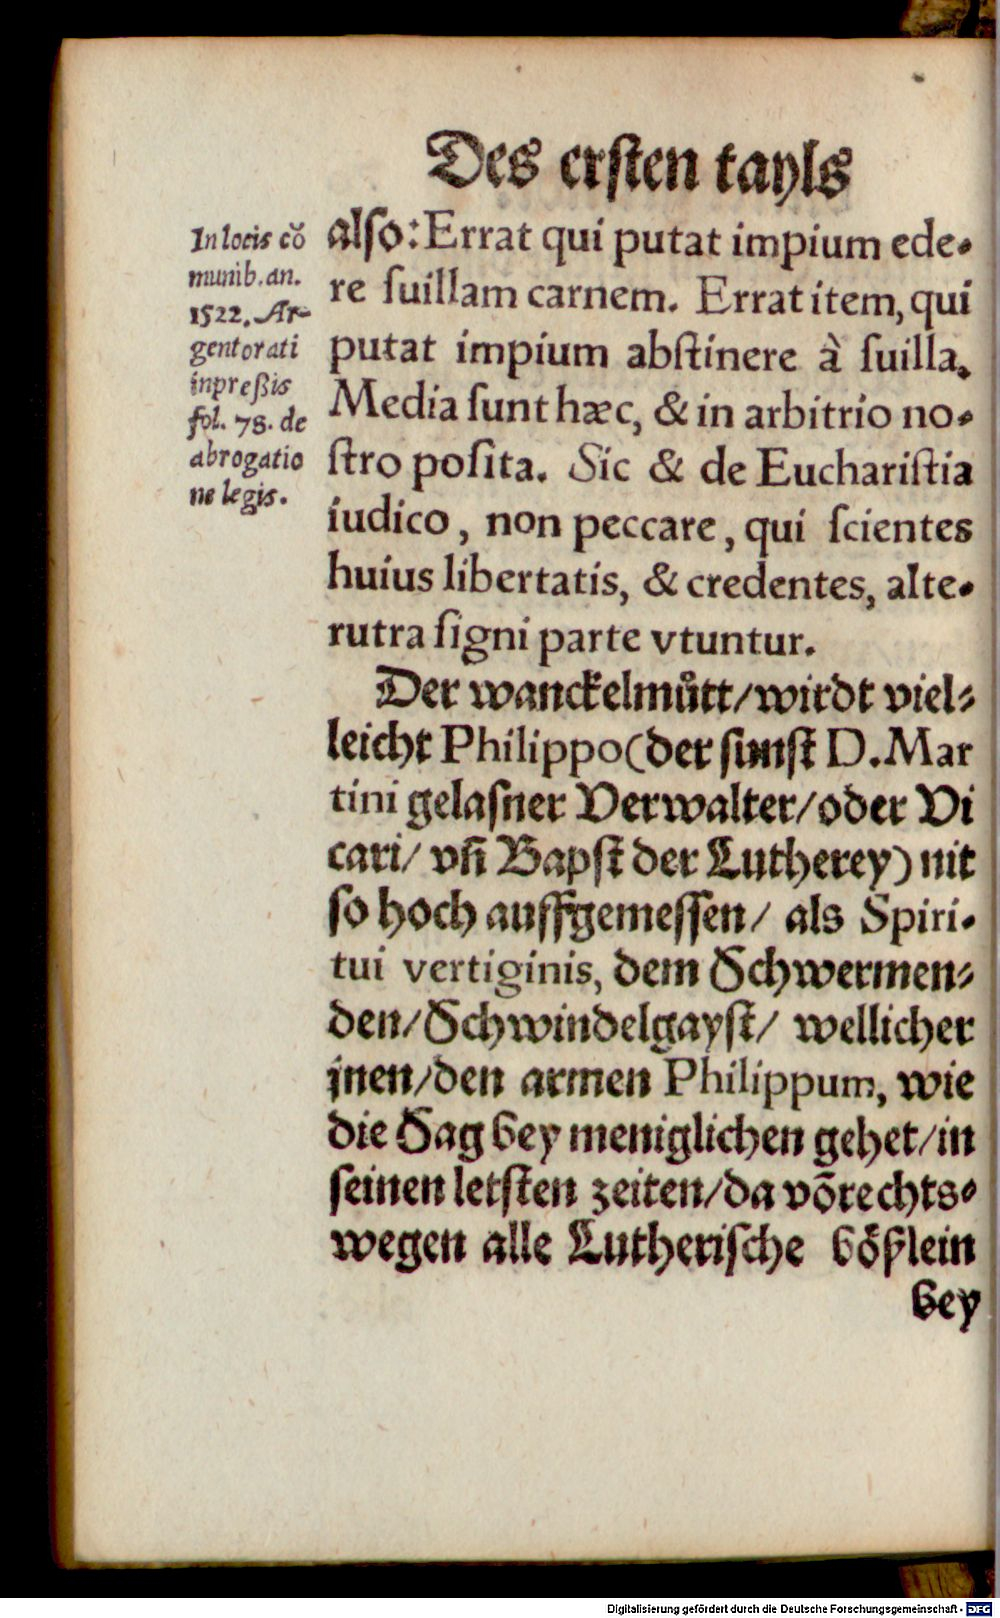 Des ersten tayls
In locis cõ
munib. an.
1522. Ar-
gentorati
inpreßis
fol. 78. de
abrogatio
ne legis.
also: Errat qui putat impium ede-
re ſuillam carnem. Errat item, qui
putat impium abſtinere à ſuilla.
Media ſunt hæc, & in arbitrio no-
ſtro poſita. Sic & de Euchariſtia
iudico, non peccare, qui ſcientes
huius libertatis, & credentes, alte-
rutra ſigni parte vtuntur.
Der wanckelmuͤtt/wirdt viel⸗
leicht Philippo(der ſunſt D. Mar
tini gelaſner Verwalter/oder Vi
cari/ vñ Bapſt der Lutherey) nit
ſo hoch auffgemeſſen/ als Spiri-
tui vertiginis, dem Schwermen⸗
den/Schwindelgayſt/ wellicher
jnen/den armen Philippum, wie
die Sag bey meniglichen gehet/in
ſeinen letſten zeiten/da võ rechts⸗
wegen alle Lutheriſche boͤßlein
bey
Digitalisierung gefördert durch die Deutsche Forschungsgemeinschaft - DFG